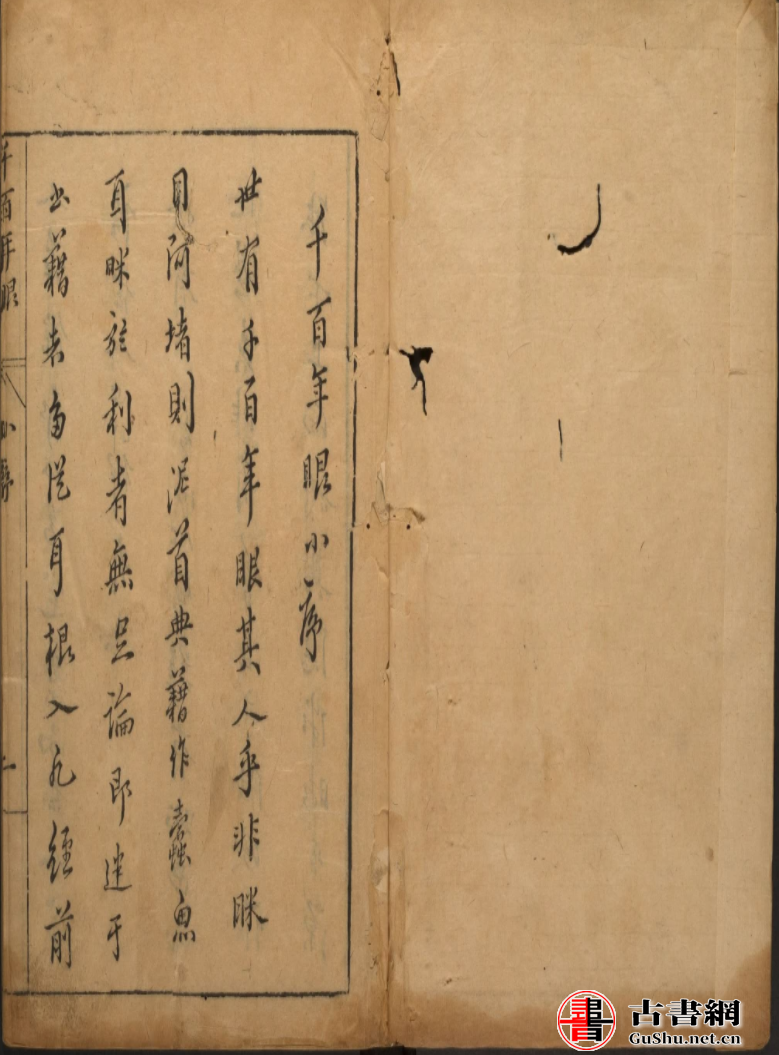 千百年眼小序
世有千百年眼其人乎非眯
目阿堵則泥首典藉作蠹魚
耳眯於利者無足論即迷于
書藉者多從耳根入凡經前
千百年眼
小序
一
古書網
GuShu.net.cn